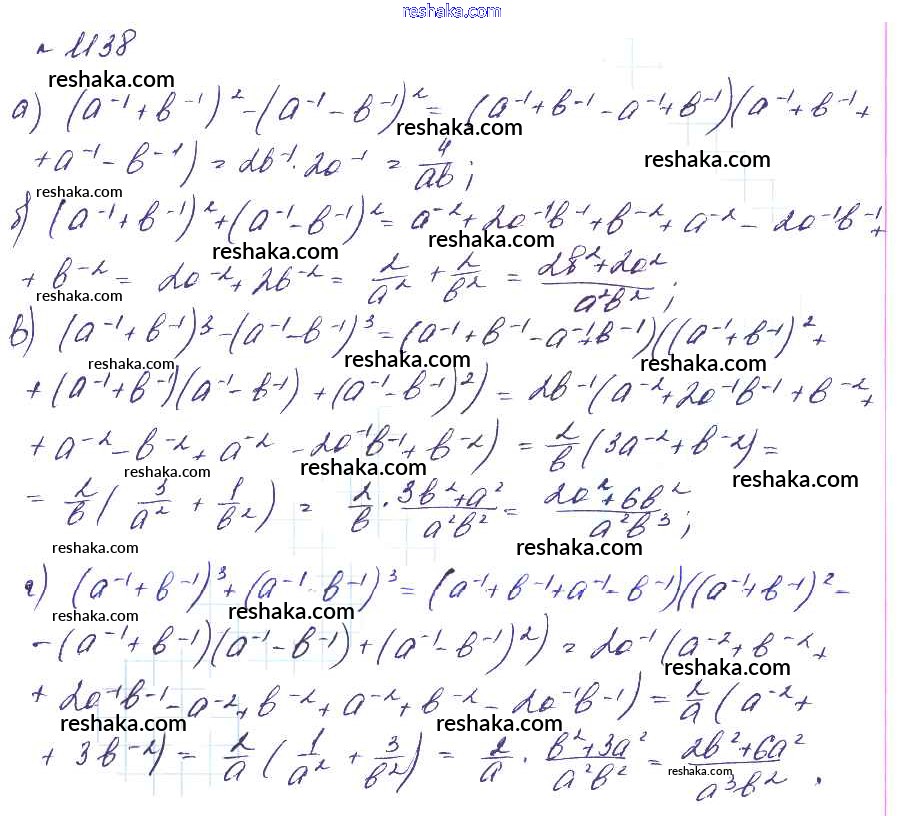 reshaka.com
№ 1138
reshaka.com
а) (a⁻¹ + b⁻¹)² - (a⁻¹ - b⁻¹)² = (a⁻¹ + b⁻¹ - a⁻¹ + b⁻¹)(a⁻¹ + b⁻¹ +
reshaka.com
+ a⁻¹ - b⁻¹) = 2b⁻¹ · 2a⁻¹ = 4/ab ;
reshaka.com
reshaka.com
б) (a⁻¹ + b⁻¹)² + (a⁻¹ - b⁻¹)² = a⁻² + 2a⁻¹b⁻¹ + b⁻² + a⁻² - 2a⁻¹b⁻¹ +
reshaka.com reshaka.com reshaka.com
+ b⁻² = 2a⁻² + 2b⁻² = 2/a² + 2/b² = (2b² + 2a²)/(a²b²) ;
reshaka.com
в) (a⁻¹ + b⁻¹)³ - (a⁻¹ - b⁻¹)³ = (a⁻¹ + b⁻¹ - a⁻¹ + b⁻¹)((a⁻¹ + b⁻¹)² +
reshaka.com reshaka.com reshaka.com
+ (a⁻¹ + b⁻¹)(a⁻¹ - b⁻¹) + (a⁻¹ - b⁻¹)²) = 2b⁻¹(a⁻² + 2a⁻¹b⁻¹ + b⁻² +
reshaka.com
+ a⁻² - b⁻² + a⁻² - 2a⁻¹b⁻¹ + b⁻²) = 2/b (3a⁻² + b⁻²) =
reshaka.com reshaka.com reshaka.com
= 2/b (3/a² + 1/b²) = 2/b · (3b² + a²)/(a²b²) = (2a² + 6b²)/(a²b³) ;
reshaka.com reshaka.com
г) (a⁻¹ + b⁻¹)³ + (a⁻¹ - b⁻¹)³ = (a⁻¹ + b⁻¹ + a⁻¹ - b⁻¹)((a⁻¹ + b⁻¹)² -
reshaka.com reshaka.com reshaka.com
- (a⁻¹ + b⁻¹)(a⁻¹ - b⁻¹) + (a⁻¹ - b⁻¹)²) = 2a⁻¹(a⁻² + b⁻² +
reshaka.com reshaka.com
+ 2a⁻¹b⁻¹ - a⁻² + b⁻² + a⁻² + b⁻² - 2a⁻¹b⁻¹) = 2/a (a⁻² +
reshaka.com reshaka.com reshaka.com
+ 3b⁻²) = 2/a (1/a² + 3/b²) = 2/a · (b² + 3a²)/(a²b²) = (2b² + 6a²)/(a³b²) .
reshaka.com